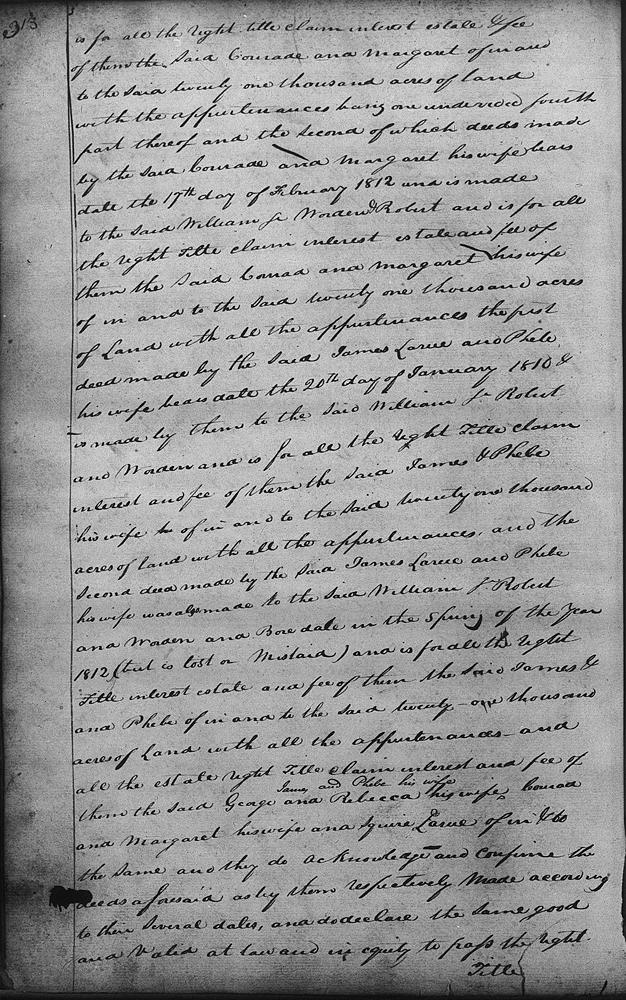 313
is for all the right title claim interest estate & fee
of them the Said Conrade and Margaret of in and
to the said twenty one thousand acres of land
with the appurtenances being one undivided fourth
part thereof and the second of which deeds made
by the Said Conrade and Margaret his wife bears
date the 17th day of February 1812 and is made
to the said William Jr Worden & Robert and is for all
the right Title claim interest estate and fee of
them the Said Conrad and Margaret his wife
of in and to the Said twenty one thousand acres
of Land with all the appurtenances the first
deed made by the Said James Larue and Phebe
his wife bears date the 20th day of January 1810 &
is made by them to the Said William Jr Robert
and Worden and is for all the right Title claim
interest and fee of them the Said James & Phebe
his wife of in and to the Said twenty one thousand
acres of land with all the appurtenances, and the
Second deed made by the Said James Larue and Phebe
his wife was also made to the Said William Jr Robert
and Worden and Bore date in the Spring of the Year
1812 (but is lost or Mislaid) and is for all the right
Title interest estate and fee of them the Said James &
and Phebe of in and to the said twenty-one thousand
acres of Land with all the appurtenances and
all the estate right Title claim interest and fee of
James and Phebe his wife
them the Said George and Rebecca his wife, Conrad
and Margaret his wife and Squire Larue of in & to
the Same and they do acknowledge and confirm the
deeds aforesaid as by them respectively Made according
to their Several dates, and do declare the Same good
and Valid at law and in equity to pass the right
Title